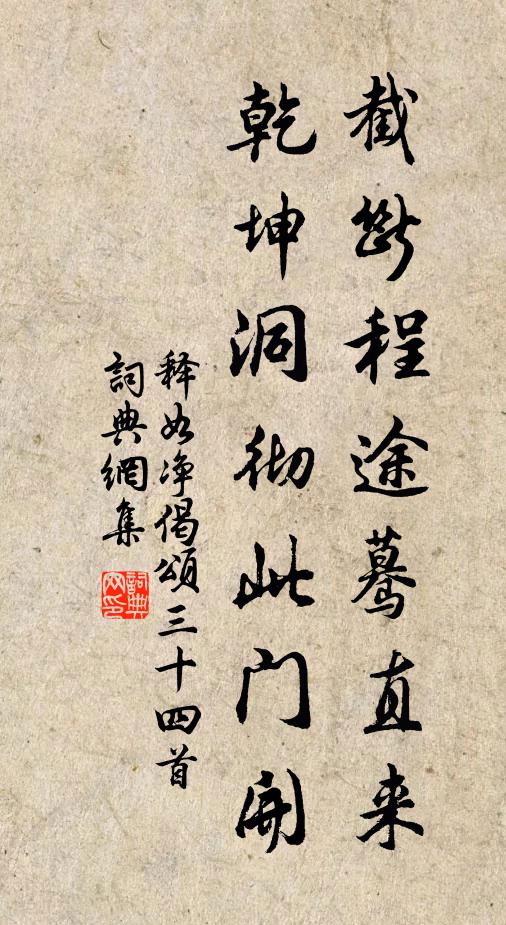 截断程途蓦直来
乾坤洞彻此门开
释如净偈颂三十四首
詞典網集
詞典网印